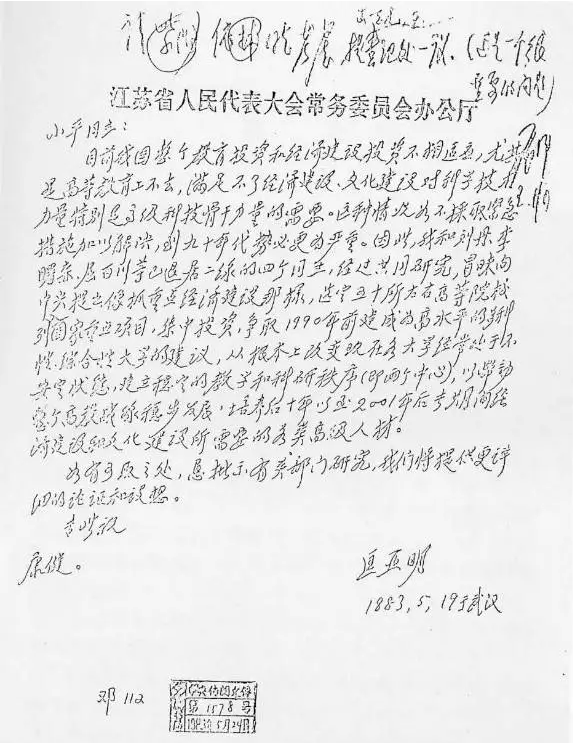 请紫阳、依林
提书记处一议。(这是一个很
重要的问题)
江苏省人民代表大会常务委员会办公厅
小平同志:
目前我国整个教育投资和经济建设投资不相适应,尤其
是高等教育上不去,满足不了经济建设、文化建设对科学技术
力量特别是高级科技骨干力量的需要。这种情况如不採取紧急
措施加以解决,到九十年代势必更为严重。因此,我和刘丹、李
曙森、屈伯川等已退居二线的四个同志,经过共同研究,冒昧向
中央提出像抓重点经济建设那样,选定五十所左右高等院校
列国家重点项目,集中投资,争取1990年前建成为高水平的多科
性、综合性大学的建议,从根本上改变现在各大学经常处于不
安定状态,建立稳定的教学和科研秩序(即两个中心),以带动
整个高教战线稳步发展,培养后十年以至2001年后长期间经
济建设和文化建设所需要的各类高级人材。
如有可取之处,恳批示有关部门研究,我们将提供更详
细的论证和设想。
康健。
匡亚明
1883,5,19于武汉
邓 112
第 1578 号